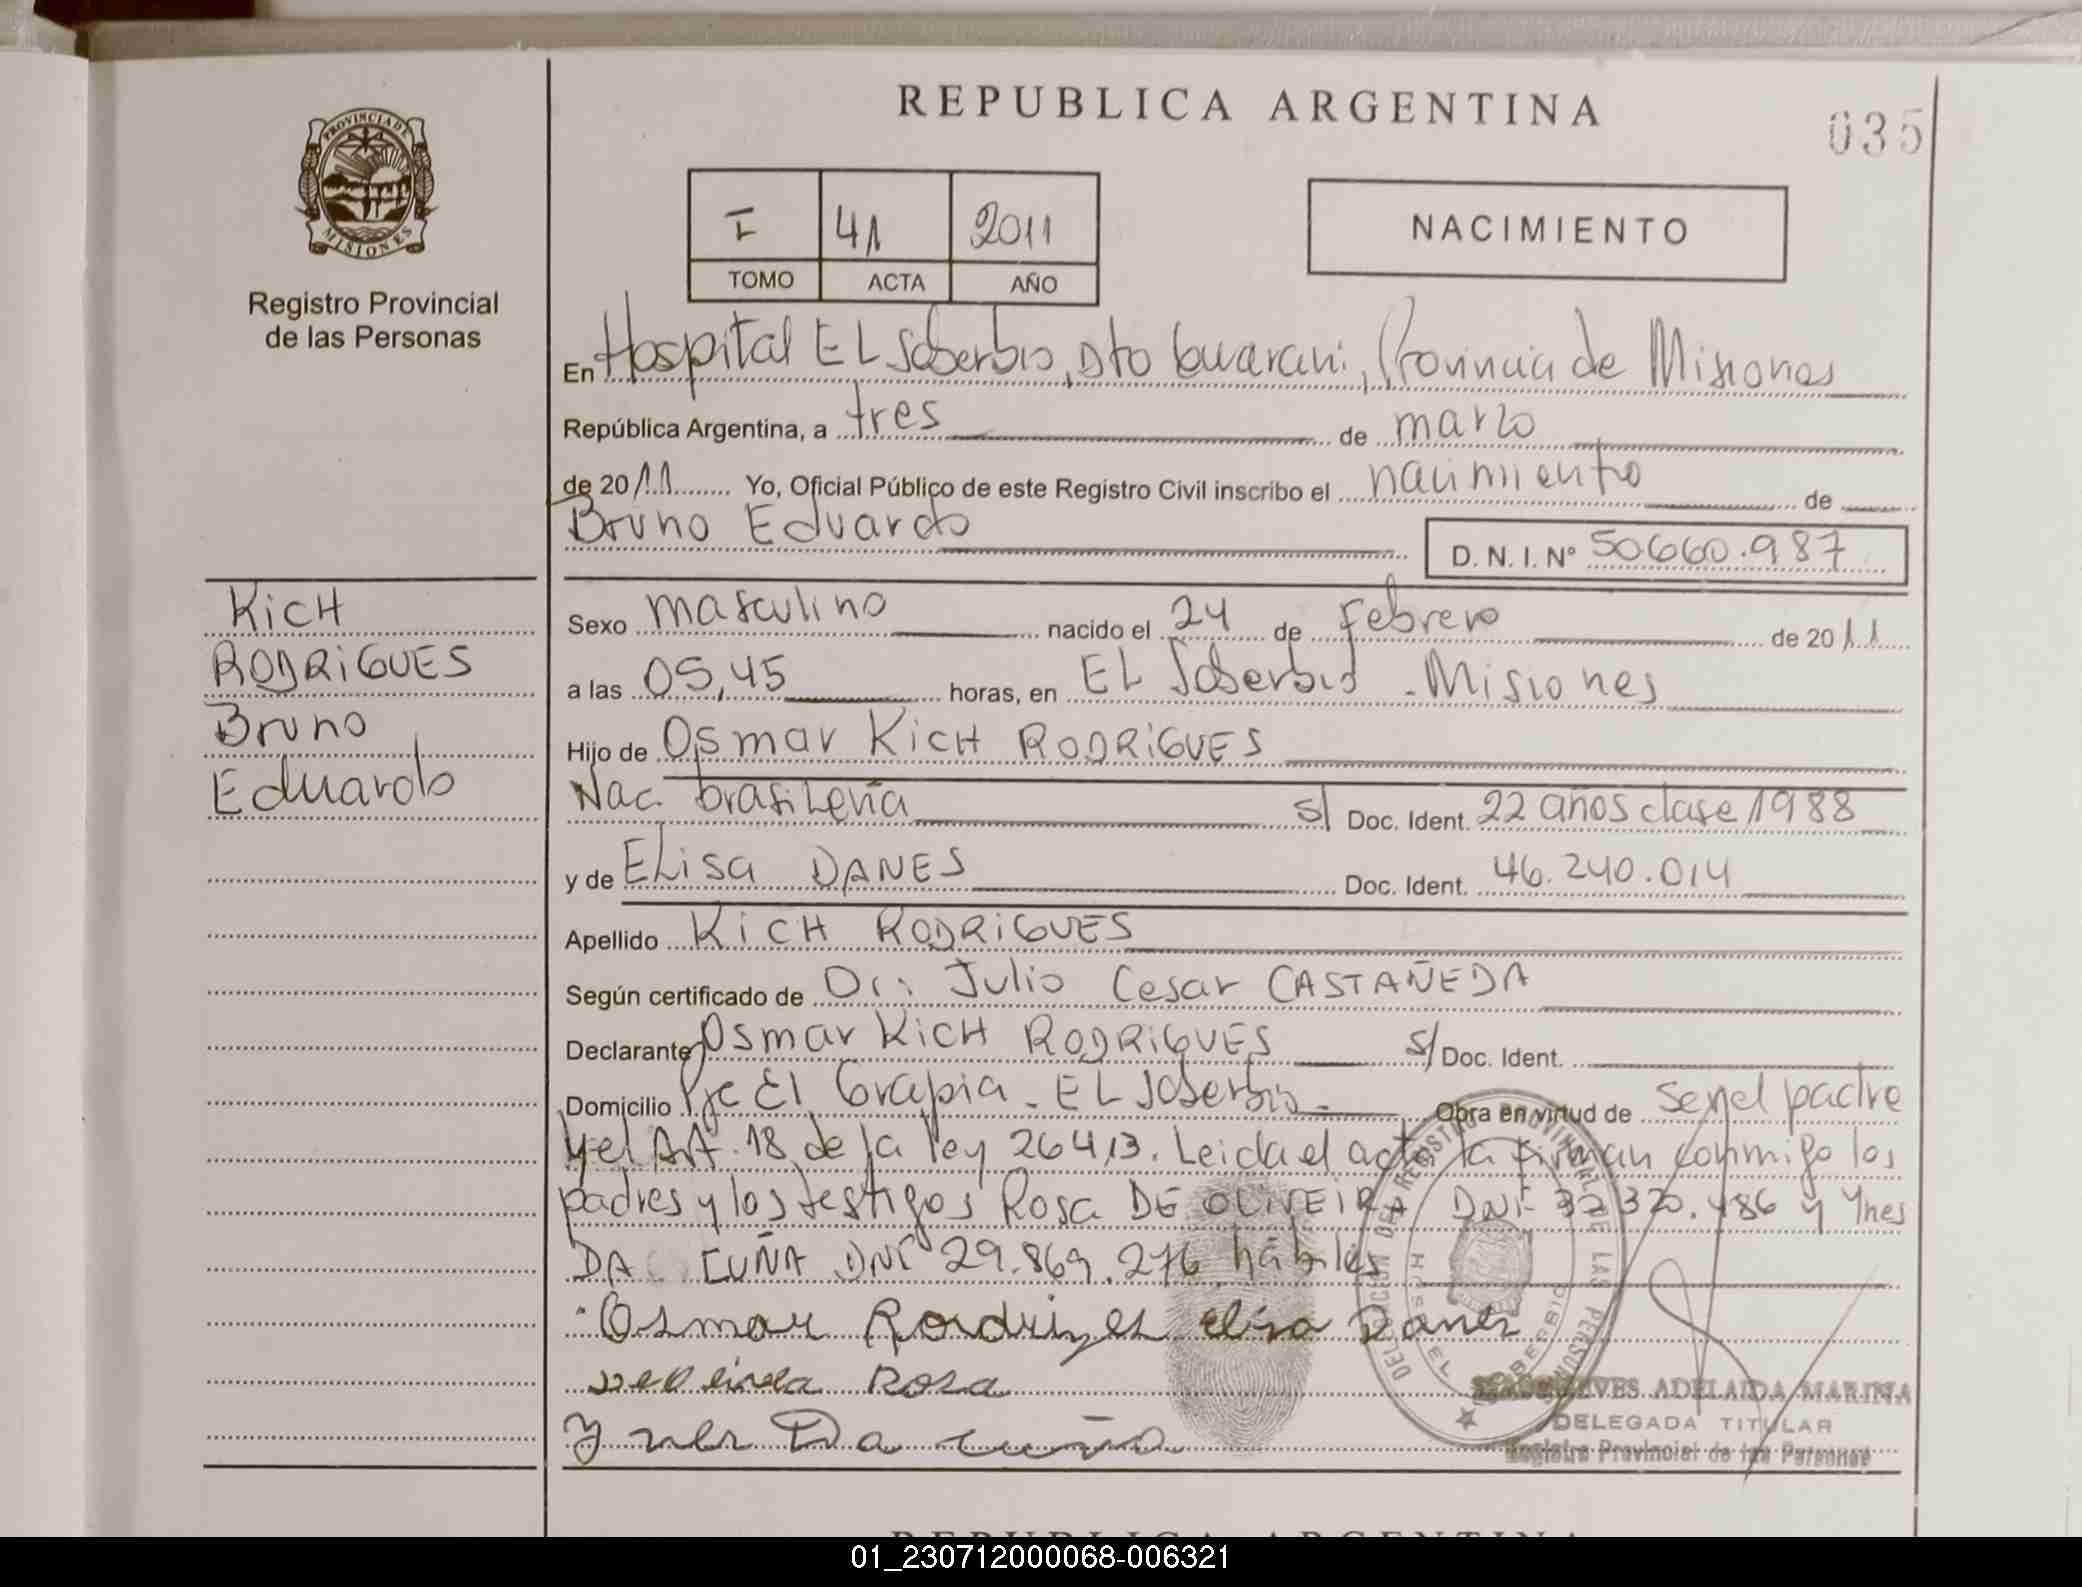 REPUBLICA ARGENTINA
035
PROVINCIA DE
MISIONES
Registro Provincial
de las Personas
I 41 2011
TOMO ACTA AÑO
NACIMIENTO
En Hospital EL Soberbio, Dto Guarani, Provincia de Misiones
República Argentina, a tres de marzo
de 2011 Yo, Oficial Público de este Registro Civil inscribo el nacimiento de
Bruno Eduardo
D. N. I. Nº 50660.987
KicH
RODRiGUES
Bruno
Eduardo
Sexo masculino nacido el 24 de Febrero de 2011
a las 05,45 horas, en EL Soberbio - Misiones
Hijo de Osmar KicH RODRiGUES
Nac. brasileña s/ Doc. Ident. 22 años clase 1988
y de ELisa DANES Doc. Ident. 46.240.014
Apellido KicH RODRiGUES
Según certificado de Dr: Julio Cesar CASTAÑEDA
Declarante Osmar KicH RODRiGUES s/ Doc. Ident.
Domicilio Pje El Grapia - EL Soberbio - Obra en virtud de ser el padre
y el Art. 18 de la ley 26413. Leida el acta la firman conmigo los
padres y los testigos Rosa DE OLIVEIRA DNI 32320.486 y Ynes
DA CUÑA DNI 29.869.276 hábiles
Osmar Rordrizes elisa Danes
Rosa
Ynes Da cuña
DELEGACION DEL REGISTRO PROVINCIAL DE LAS PERSONAS
EL SOBERBIO
NEVES ADELAIDA MARINA
DELEGADA TITULAR
Registro Provincial de las Personas
REPUBLICA ARGENTINA
01_230712000068-006321